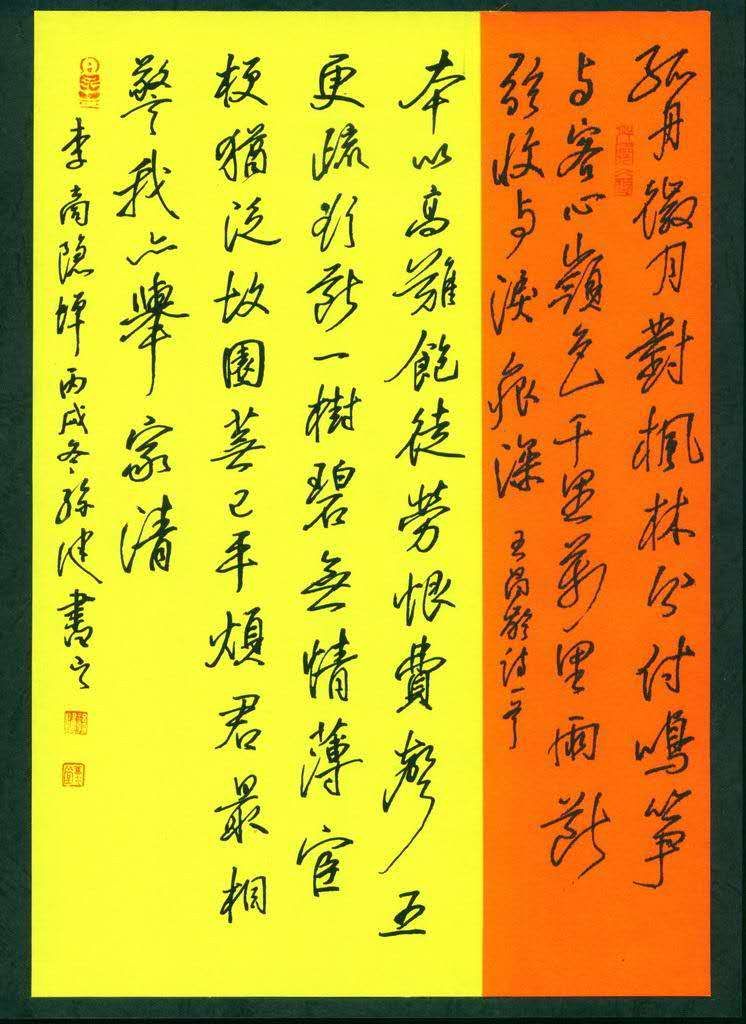 孤舟微月對楓林分付鳴箏
与客心嶺色千重万重雨斷
弦收与淚痕深 王昌齡诗一首
本以高難飽徒勞恨費聲五
更疏欲斷一樹碧無情薄宦
梗猶泛故園蕪已平煩君最相
警我亦舉家清
李商隐蟬丙戌冬孫健書